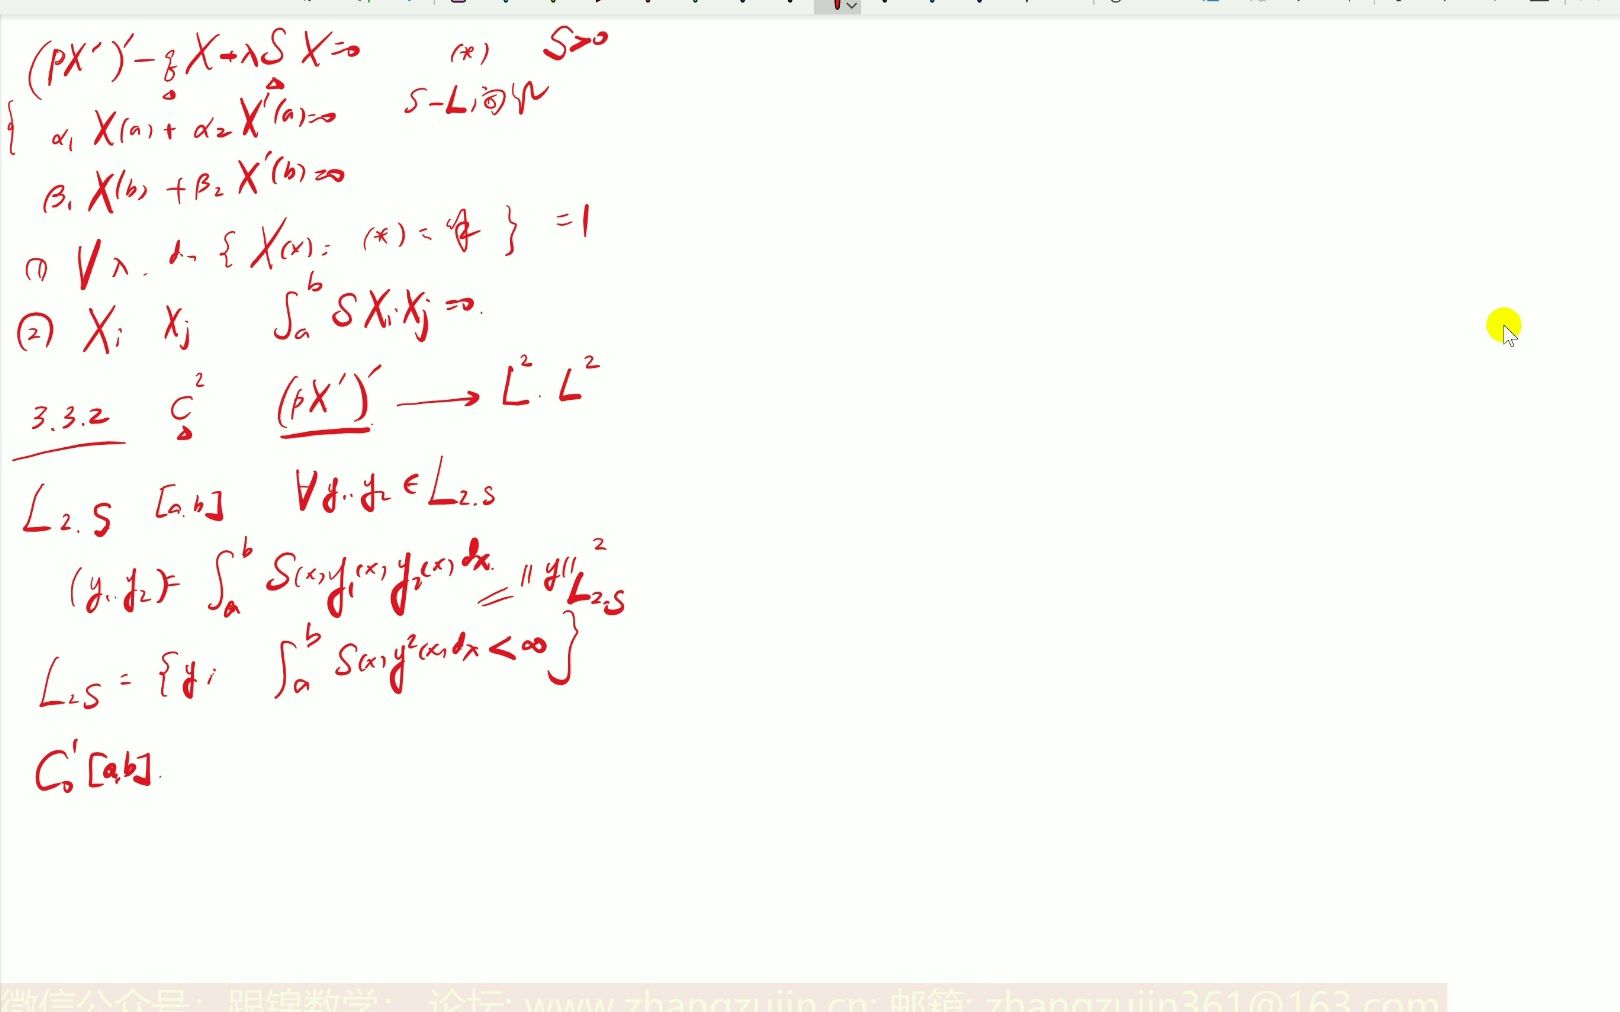 (pX′)′ − qX + λS X = 0 (*) S>0
α₁ X(a) + α₂ X′(a) = 0 S-L问题
β₁ X(b) + β₂ X′(b) = 0
① ∀ λ. { X(x): (*) } = 1
② Xᵢ Xⱼ ∫ₐᵇ S XᵢXⱼ = 0.
3.3.2 C² (pX′)′ → L². L²
L₂.S [a.b] ∀ y₁.y₂ ∈ L₂.S
(y₁.y₂) = ∫ₐᵇ S(x)y₁(x)y₂(x)dx. = ‖y‖²L₂.S
L₂S = {y; ∫ₐᵇ S(x)y²(x)dx < ∞}
C₀¹[a,b].
微信公众号: 跟锦数学; 论坛: www.zhangzujin.cn; 邮箱: zhangzujin361@163.com